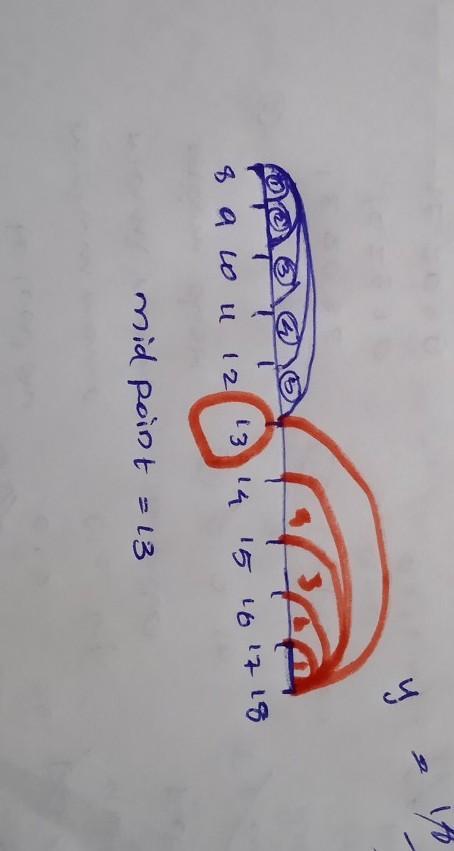 ① ② ③ ④ ⑤ 4 3 2 1
8 9 10 11 12 13 14 15 16 17 18
mid point = 13
y =